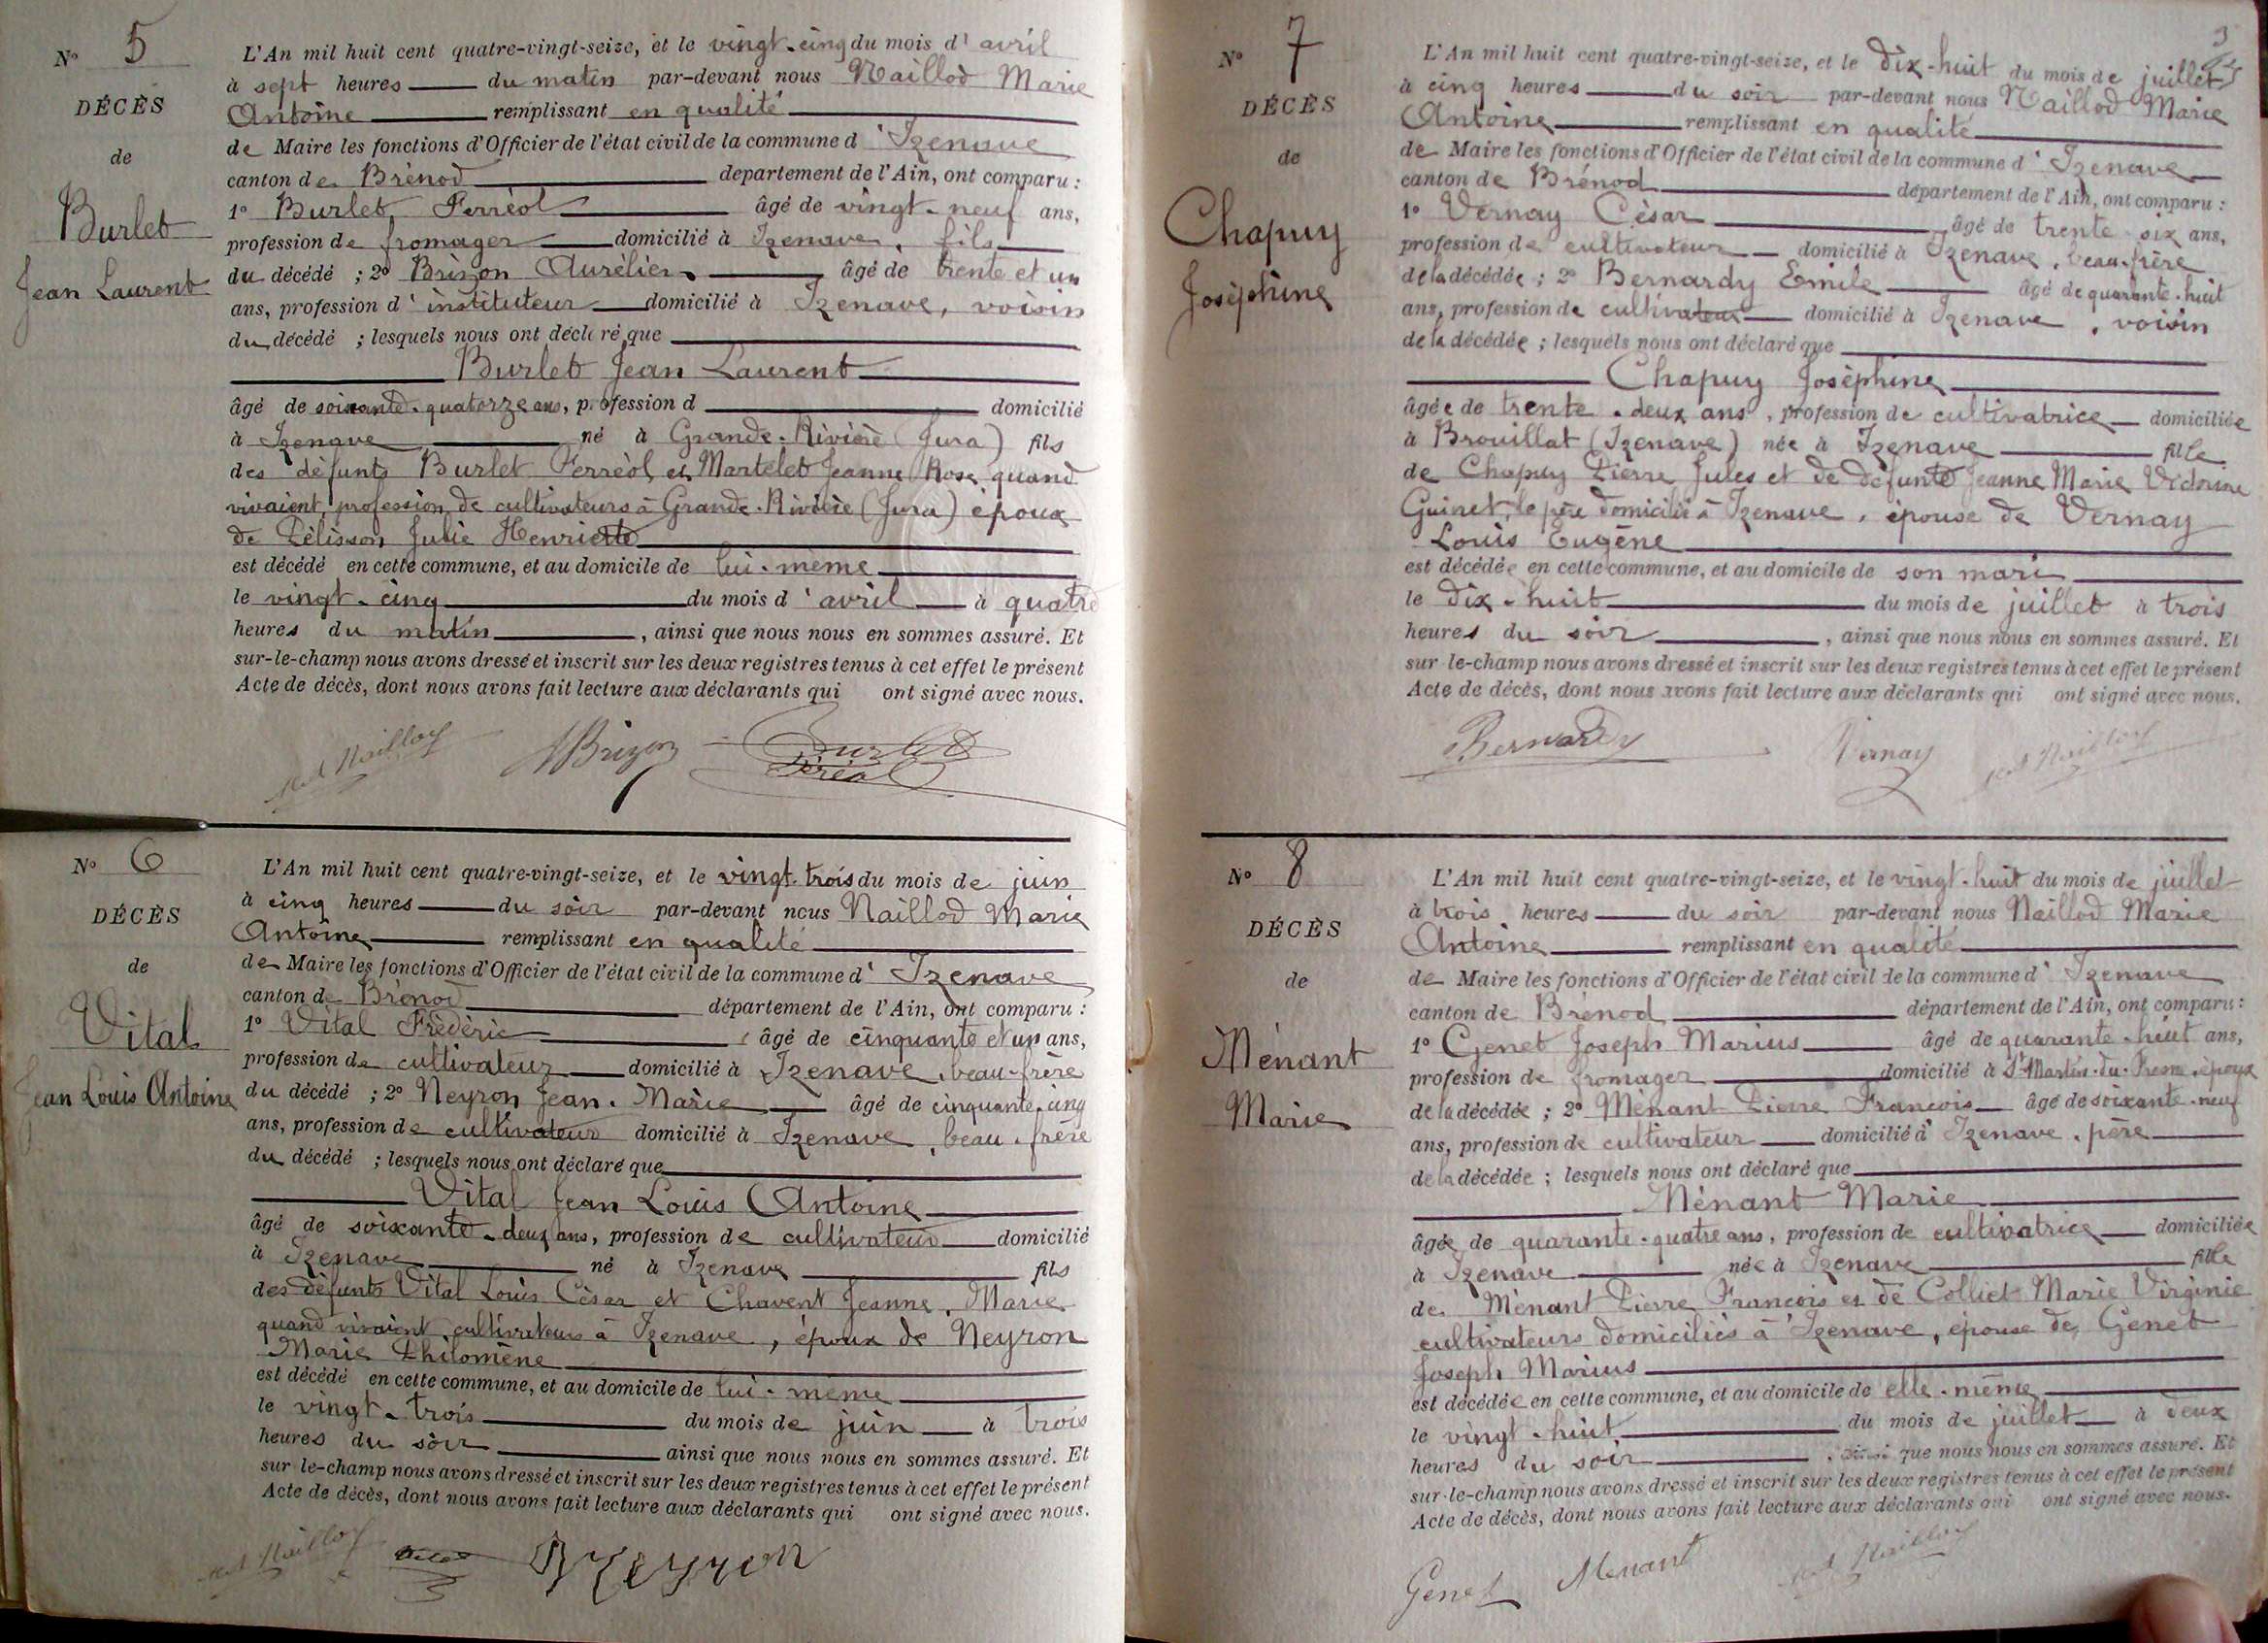 N° 5
DÉCÈS
de
Burlet
Jean Laurent
L'An mil huit cent quatre-vingt-seize, et le vingt-cinq du mois d'avril
à sept heures du matin par-devant nous Naillod Marie
Antoine remplissant en qualité
de Maire les fonctions d'Officier de l'état civil de la commune d'Izenave
canton de Brénod departement de l'Ain, ont comparu :
1° Burlet Ferréol âgé de vingt-neuf ans,
profession de fromager domicilié à Izenave, fils
du décédé ; 2° Brizon Aurélien âgé de trente et un
ans, profession d'instituteur domicilié à Izenave, voisin
du décédé ; lesquels nous ont déclaré que
Burlet Jean Laurent
âgé de soixante-quatorze ans, profession d domicilié
à Izenave né à Grande-Rivière (Jura) fils
des défunts Burlet Ferréol et Martelet Jeanne Rose quand
vivaient, profession de cultivateurs à Grande-Rivière (Jura) époux
de Pélisson Julie Henriette
est décédé en cette commune, et au domicile de lui-même
le vingt-cinq du mois d'avril à quatre
heures du matin, ainsi que nous nous en sommes assuré. Et
sur-le-champ nous avons dressé et inscrit sur les deux registres tenus à cet effet le présent
Acte de décès, dont nous avons fait lecture aux déclarants qui ont signé avec nous.
Naillod ABrizon Burlet
Féréol
N° 6
DÉCÈS
de
Vital
Jean Louis Antoine
L'An mil huit cent quatre-vingt-seize, et le vingt-trois du mois de juin
à cinq heures du soir par-devant nous Naillod Marie
Antoine remplissant en qualité
de Maire les fonctions d'Officier de l'état civil de la commune d'Izenave
canton de Brénod département de l'Ain, ont comparu :
1° Vital Frédéric âgé de cinquante et un ans,
profession de cultivateur domicilié à Izenave, beau-frère
du décédé ; 2° Neyron Jean-Marie âgé de cinquante-cinq
ans, profession de cultivateur domicilié à Izenave, beau-frère
du décédé ; lesquels nous ont déclaré que
Vital Jean Louis Antoine
âgé de soixante-deux ans, profession de cultivateur domicilié
à Izenave né à Izenave fils
des défunts Vital Louis César et Chavent Jeanne-Marie
quand vivaient cultivateurs à Izenave, époux de Neyron
Marie Philomène
est décédé en cette commune, et au domicile de lui-même
le vingt-trois du mois de juin à trois
heures du soir ainsi que nous nous en sommes assuré. Et
sur-le-champ nous avons dressé et inscrit sur les deux registres tenus à cet effet le présent
Acte de décès, dont nous avons fait lecture aux déclarants qui ont signé avec nous.
Naillod Vital Neyron
N° 7
DÉCÈS
de
Chapuy
Joséphine
L'An mil huit cent quatre-vingt-seize, et le dix-huit du mois de juillet
à cinq heures du soir par-devant nous Naillod Marie
Antoine remplissant en qualité
de Maire les fonctions d'Officier de l'état civil de la commune d'Izenave
canton de Brénod département de l'Ain, ont comparu :
1° Vernay César âgé de trente-six ans,
profession de cultivateur domicilié à Izenave, beau-frère
de la décédée ; 2° Bernardy Emile âgé de quarante-huit
ans, profession de cultivateur domicilié à Izenave, voisin
de la décédée ; lesquels nous ont déclaré que
Chapuy Joséphine
âgée de trente-deux ans, profession de cultivatrice domiciliée
à Brouillat (Izenave) née à Izenave fille
de Chapuy Pierre Jules et de défunte Jeanne Marie Victorine
Guinet, le père domicilié à Izenave, épouse de Vernay
Louis Eugène
est décédée en cette commune, et au domicile de son mari
le dix-huit du mois de juillet à trois
heures du soir, ainsi que nous nous en sommes assuré. Et
sur-le-champ nous avons dressé et inscrit sur les deux registres tenus à cet effet le présent
Acte de décès, dont nous avons fait lecture aux déclarants qui ont signé avec nous.
Bernardy Vernay Naillod
N° 8
DÉCÈS
de
Ménant
Marie
L'An mil huit cent quatre-vingt-seize, et le vingt-huit du mois de juillet
à trois heures du soir par-devant nous Naillod Marie
Antoine remplissant en qualité
de Maire les fonctions d'Officier de l'état civil de la commune d'Izenave
canton de Brénod département de l'Ain, ont comparu :
1° Genet Joseph Marius âgé de quarante-huit ans,
profession de fromager domicilié à St-Martin-du-Fresne, époux
de la décédée ; 2° Ménant Pierre François âgé de soixante-neuf
ans, profession de cultivateur domicilié à Izenave, père
de la décédée ; lesquels nous ont déclaré que
Ménant Marie
âgée de quarante-quatre ans, profession de cultivatrice domiciliée
à Izenave née à Izenave fille
de Ménant Pierre François et de Colliet Marie Virginie
cultivateurs domiciliés à Izenave, épouse de Genet
Joseph Marius
est décédée en cette commune, et au domicile de elle-même
le vingt-huit du mois de juillet à deux
heures du soir, ainsi que nous nous en sommes assuré. Et
sur-le-champ nous avons dressé et inscrit sur les deux registres tenus à cet effet le présent
Acte de décès, dont nous avons fait lecture aux déclarants qui ont signé avec nous.
Genet Menant Naillod